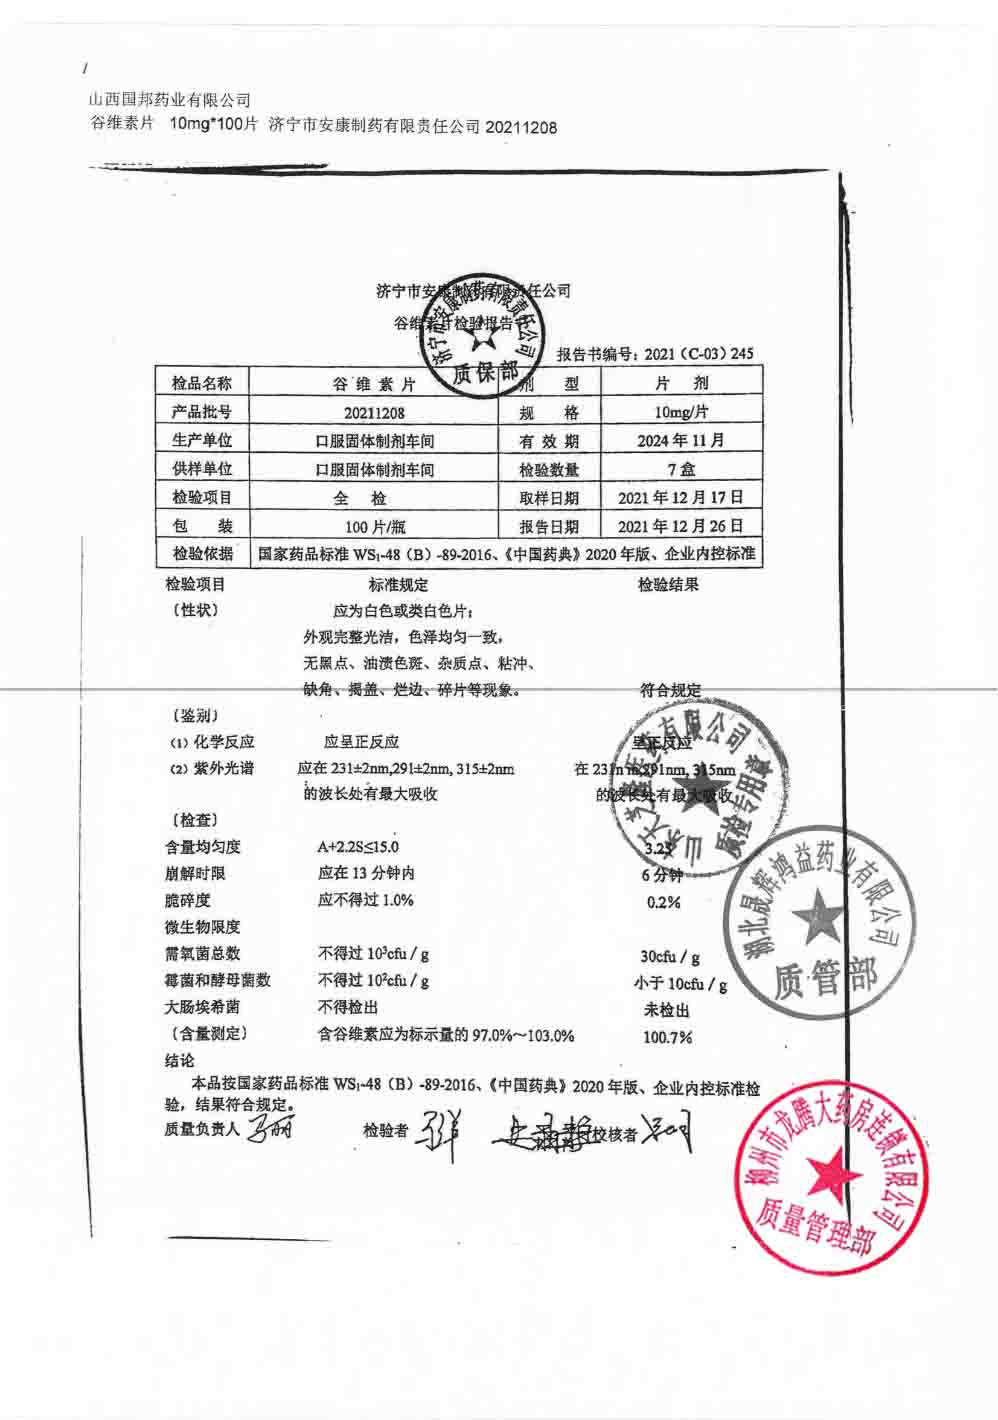 山西国邦药业有限公司
谷维素片 10mg*100片 济宁市安康制药有限责任公司 20211208
济宁市安康制药有限责任公司
谷维素片检验报告书
济宁市安康制药有限责任公司
质保部
报告书编号：2021（C-03）245
检品名称 谷 维 素 片 剂 型 片 剂
产品批号 20211208 规 格 10mg/片
生产单位 口服固体制剂车间 有 效 期 2024 年 11 月
供样单位 口服固体制剂车间 检验数量 7 盒
检验项目 全 检 取样日期 2021 年 12 月 17 日
包 装 100 片/瓶 报告日期 2021 年 12 月 26 日
检验依据 国家药品标准 WS₁-48（B）-89-2016、《中国药典》2020 年版、企业内控标准
检验项目 标准规定 检验结果
〔性状〕 应为白色或类白色片；
外观完整光洁，色泽均匀一致，
无黑点、油渍色斑、杂质点、粘冲、
缺角、揭盖、烂边、碎片等现象。 符合规定
〔鉴别〕
（1）化学反应 应呈正反应 呈正反应
（2）紫外光谱 应在 231±2nm,291±2nm, 315±2nm 在 231nm,291nm, 315nm
的波长处有最大吸收 的波长处有最大吸收
〔检查〕
含量均匀度 A+2.2S≤15.0 3.23
崩解时限 应在 13 分钟内 6 分钟
脆碎度 应不得过 1.0% 0.2%
微生物限度
需氧菌总数 不得过 10³cfu / g 30cfu / g
霉菌和酵母菌数 不得过 10²cfu / g 小于 10cfu / g
大肠埃希菌 不得检出 未检出
〔含量测定〕 含谷维素应为标示量的 97.0%～103.0% 100.7%
结论
本品按国家药品标准 WS₁-48（B）-89-2016、《中国药典》2020 年版、企业内控标准检
验，结果符合规定。
质量负责人 检验者 校核者
质检专用章
湖北晟辉鸿益药业有限公司
质管部
柳州市龙腾大药房连锁有限公司
质量管理部